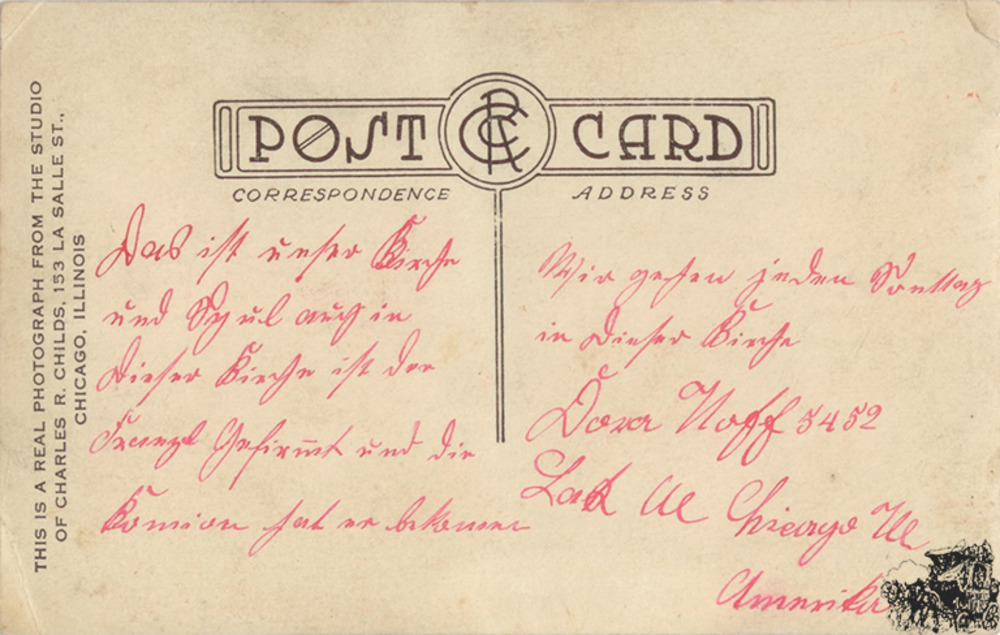 THIS IS A REAL PHOTOGRAPH FROM THE STUDIO
OF CHARLES R. CHILDS, 153 LA SALLE ST.,
CHICAGO, ILLINOIS
POST CARD
CORRESPONDENCE
ADDRESS
Das ist unser Kirche
und Schul auch in
Dieser Kirche ist der
Franzl Gefirmt und die
Komion hat er bekomen
Wir gehen jeden Sonttag
in Dieser Kirche
Dora Noff 5452
Lak Chicago Ill
Amerika